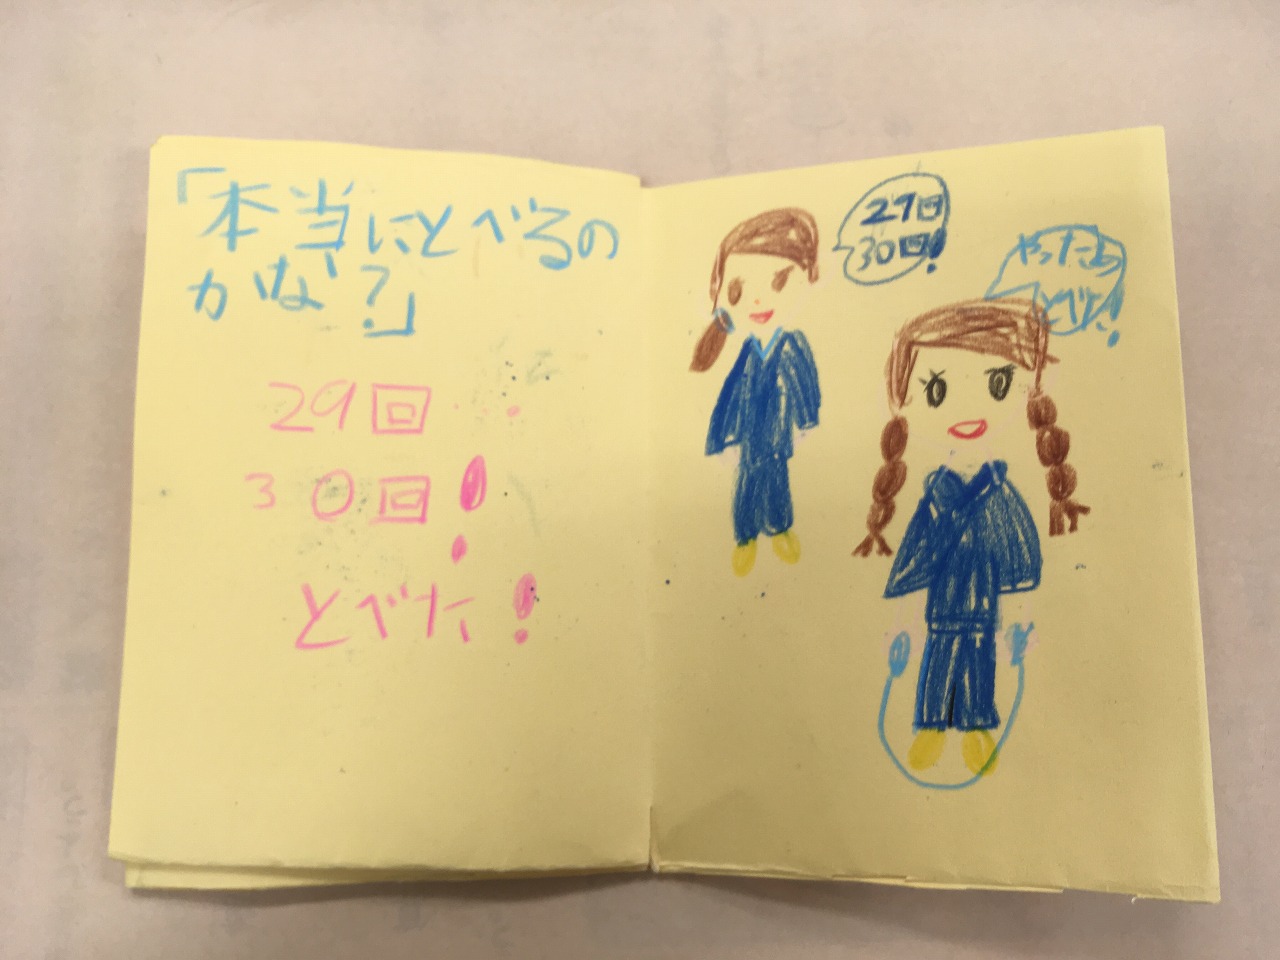 「本当にとべるの
かな?」
29回
30回!
とべた!
29回
30回!
やったあ
とべた!